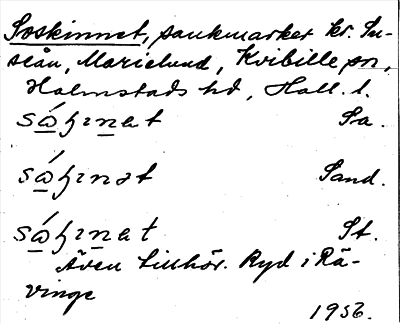 Soskinnet, sankmarker kr. Su-
seån, Marielund, Kvibille sn,
Halmstads hd, Hall. l.
såʒɪnat Sa.
såʒɪnət Sand.
såʒɪnat St.
Även tillhör. Ryd i Rä-
vinge
1956.